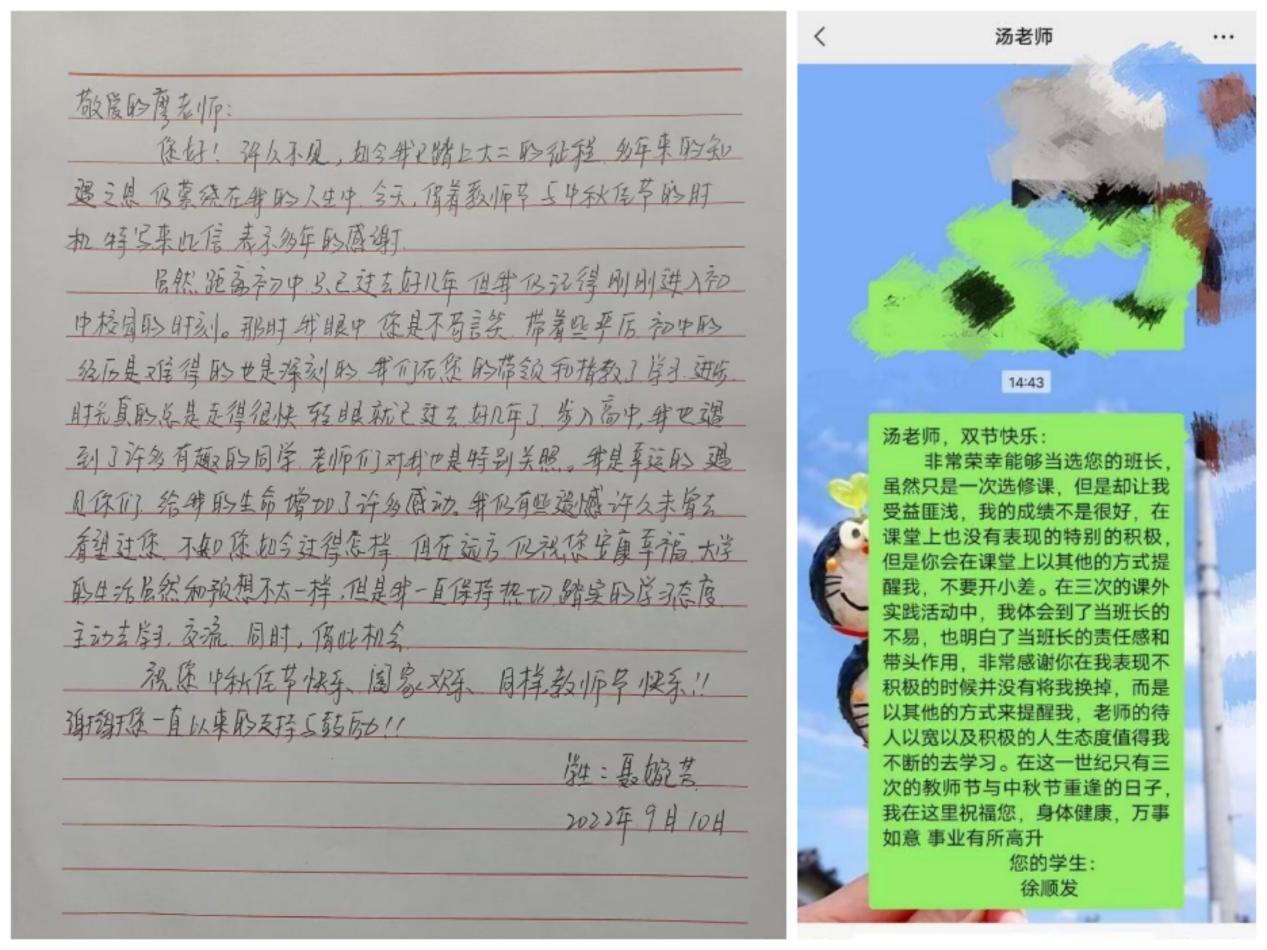 敬爱的廖老师:
您好！许久不见,如今我已踏上大二的征程.多年来的知
遇之恩仍萦绕在我的人生中.今天,借着教师节与中秋佳节的时
机 特写来此信 表示多年的感谢.
虽然 距离初中 已过去好几年 但我仍记得刚刚进入初
中校园的时刻。那时 我眼中 您是不苟言笑 带着些严厉 初中的
经历是难得的也是深刻的.我们在您的带领和指教了学习.进步.
时光真的总是走得很快 转眼就已过去好几年了.步入高中,我也遇
到了许多有趣的同学.老师们对我也是特别关照。我是幸运的 遇
见你们.给我的生命增加了许多感动.我仍有些遗憾许久未曾去
看望过您.不知您如今过得怎样.但在远方仍祝您安康幸福.大学
的生活虽然和预想不太一样,但是我一直保持热切踏实的学习态度.
主动去学习.交流.同时,借此机会.
祝您中秋佳节快乐、阖家欢乐、同样教师节快乐!!
谢谢您一直以来的支持与鼓励!!
学生：聂婉芸
2022年9月10日
汤老师
14:43
汤老师，双节快乐：
非常荣幸能够当选您的班长，
虽然只是一次选修课，但是却让我
受益匪浅，我的成绩不是很好，在
课堂上也没有表现的特别的积极，
但是你会在课堂上以其他的方式提
醒我，不要开小差。在三次的课外
实践活动中，我体会到了当班长的
不易，也明白了当班长的责任感和
带头作用，非常感谢你在我表现不
积极的时候并没有将我换掉，而是
以其他的方式来提醒我，老师的待
人以宽以及积极的人生态度值得我
不断的去学习。在这一世纪只有三
次的教师节与中秋节重逢的日子，
我在这里祝福您，身体健康，万事
如意 事业有所高升
您的学生：
徐顺发